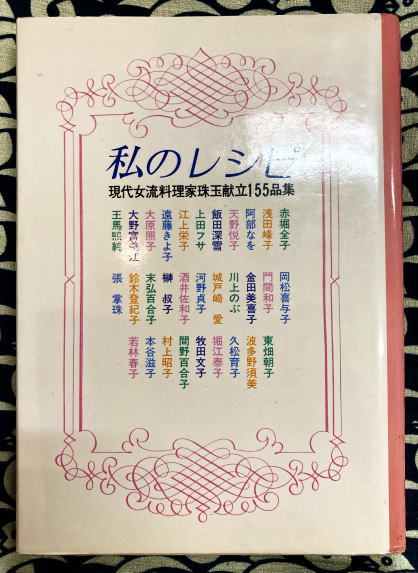 私のレシピ
現代女流料理家珠玉献立155品集
赤堀全子
浅田峰子
阿部なを
天野悦子
飯田深雪
上田フサ
江上栄子
遠藤きよ子
大原照子
大野富美江
王馬熙純
岡松喜与子
門間和子
金田美喜子
川上のぶ
城戸崎 愛
河野貞子
酒井佐和子
榊 叔子
末弘百合子
鈴木登紀子
張 掌珠
東畑朝子
波多野須美
久松育子
堀江泰子
牧田文子
間野百合子
村上昭子
本谷滋子
若林春子